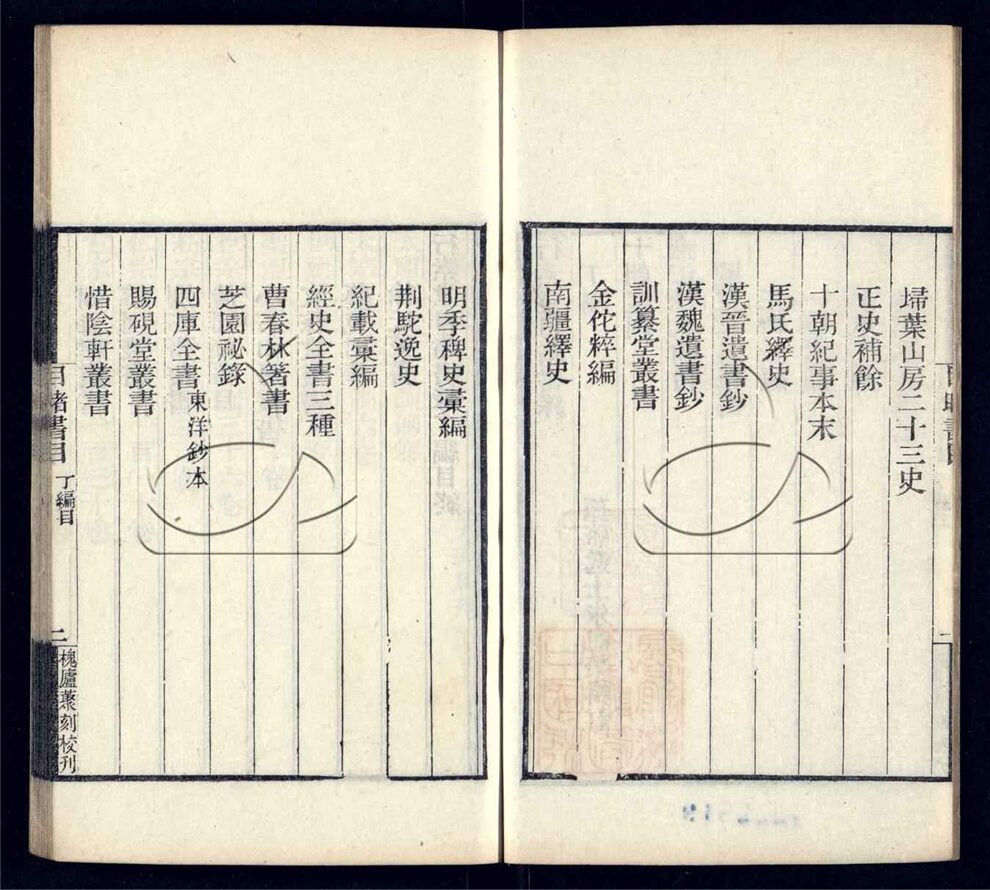 埽葉山房二十三史
正史補餘
十朝紀事本末
馬氏繹史
漢晉遺書鈔
漢魏遺書鈔
訓纂堂叢書
金佗粹編
南疆繹史
明季稗史彙編
荆駝逸史
紀載彙編
經史全書三種
曹春林箸書
芝園祕錄
四庫全書 東洋鈔本
賜硯堂叢書
惜陰軒叢書
目睹書目 丁編目 二 槐廬叢刻校刊